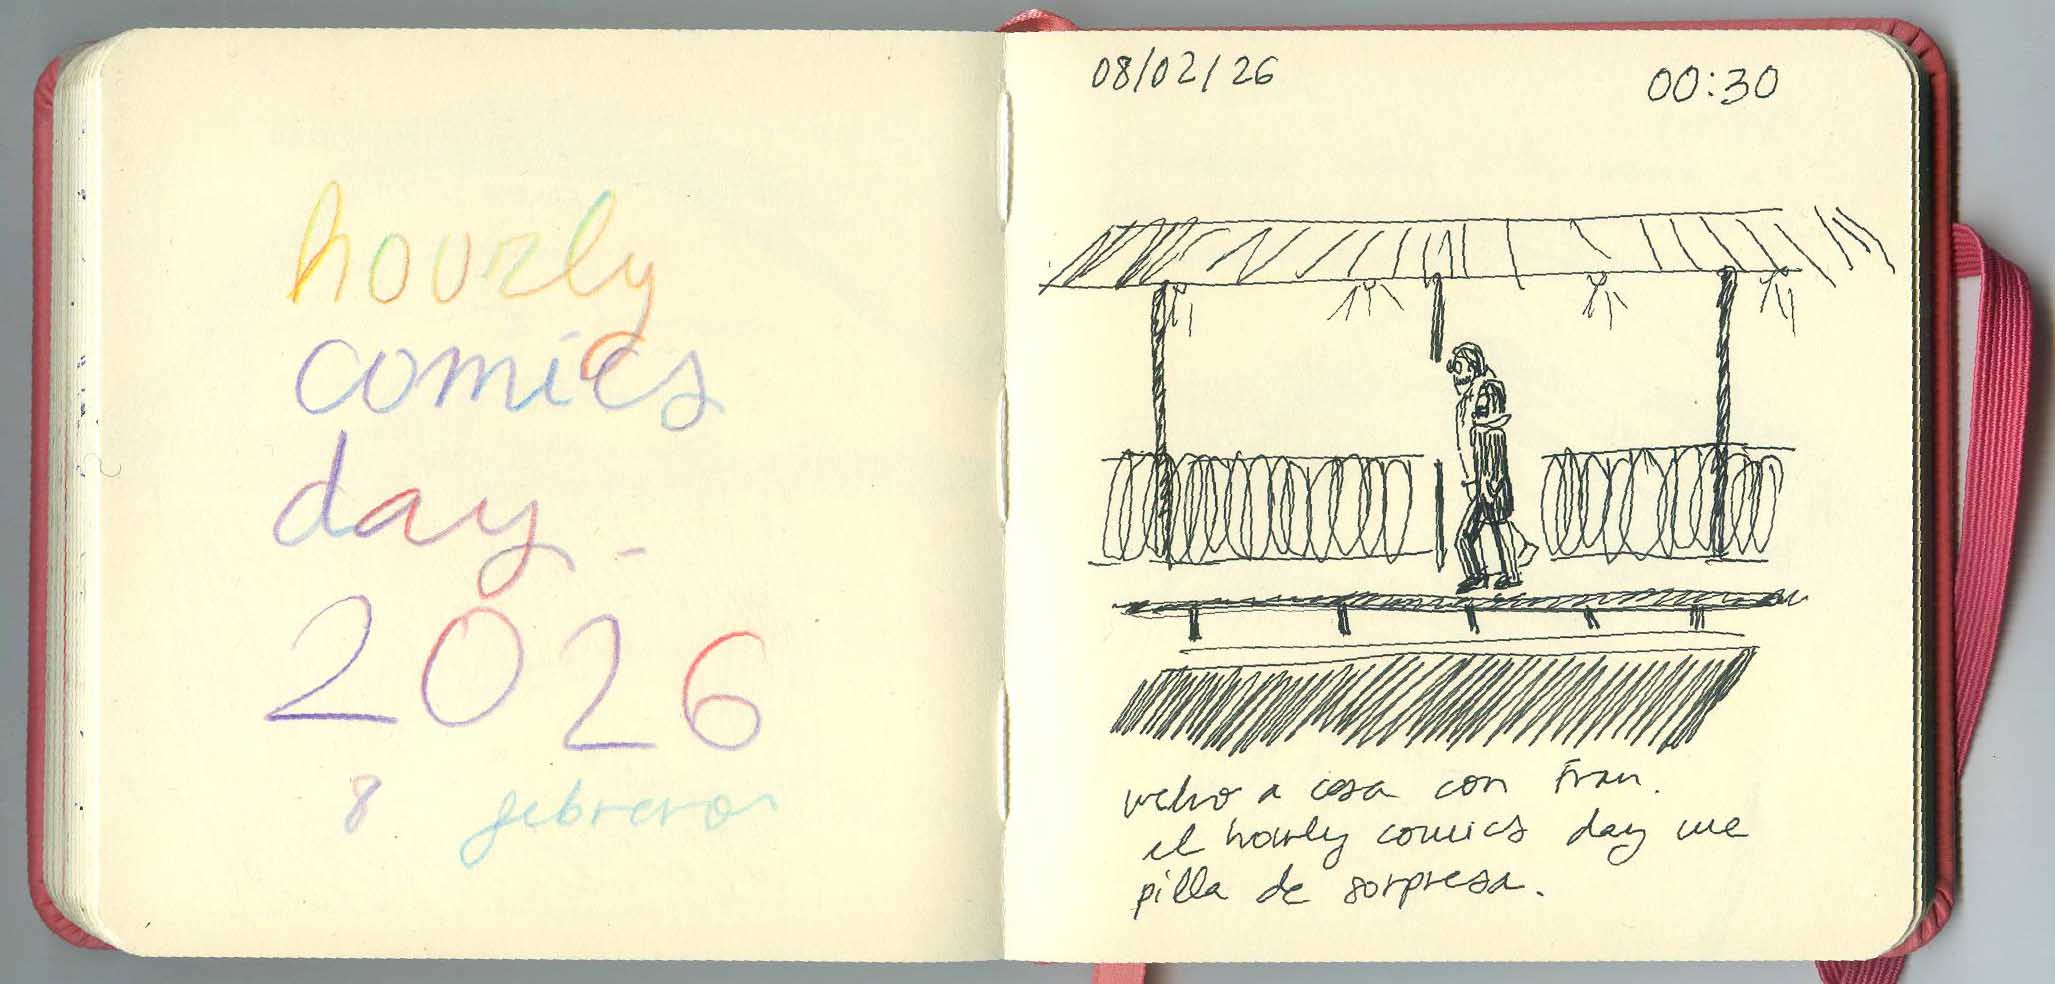 hourly
comics
day -
2026
8 febrero
08/02/26
00:30
vuelvo a casa con Fran.
el hourly comics day me
pilla de sorpresa.